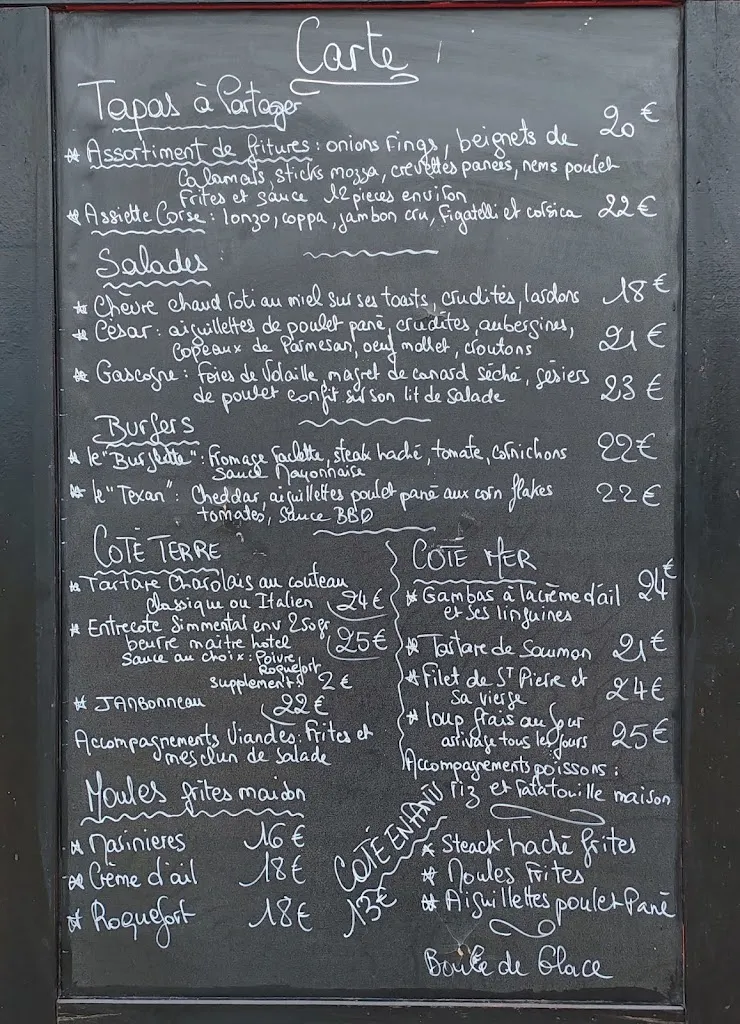 Carte
Tapas à Partager
Assortiment de fritures : onions rings, beignets de 20€
Calamars, sticks mozza, crevettes panées, nems poulet
Frites et sauce 12 pieces environ
Assiette Corse : lonzo, coppa, jambon cru, Figatelli et corsica 22€
Salades
Chèvre chaud roti au miel sur ses toasts, crudités, lardons 18€
César : aiguillettes de poulet pané, crudités, aubergines, 21€
Copeaux de Parmesan, oeuf mollet, croutons
Gascogne : foies de Volaille, magret de canard séché, gésiers 23€
de poulet confit sur son lit de Salade
Burgers
le "Burglette" : fromage raclette, steak haché, tomate, cornichons 22€
Sauce Mayonnaise
le "Texan" : Cheddar, aiguillettes poulet pané aux corn flakes 22€
tomates, Sauce BBQ
COTÉ TERRE
Tartare Charolais au couteau
Classique ou Italien 24€
Entrecote Simmental env 250gr
beurre maitre hotel 25€
Sauce au choix : Poivre
Roquefort
supplements 2€
JAMBONNEAU 22€
Accompagnements Viandes : Frites et
mesclun de salade
COTÉ MER
Gambas à la crème d'ail 24€
et ses linguines
Tartare de Saumon 21€
Filet de St Pierre et 24€
Sa vierge
loup frais du jour 25€
arrivage tous les jours
Accompagnements poissons :
riz et ratatouille maison
Moules frites maison
Marinieres 16€
Crème d'ail 18€
Roquefort 18€
COTÉ ENFANTS
13€
Steack haché frites
Moules Frites
Aiguillettes poulet Pané
Boule de Glace